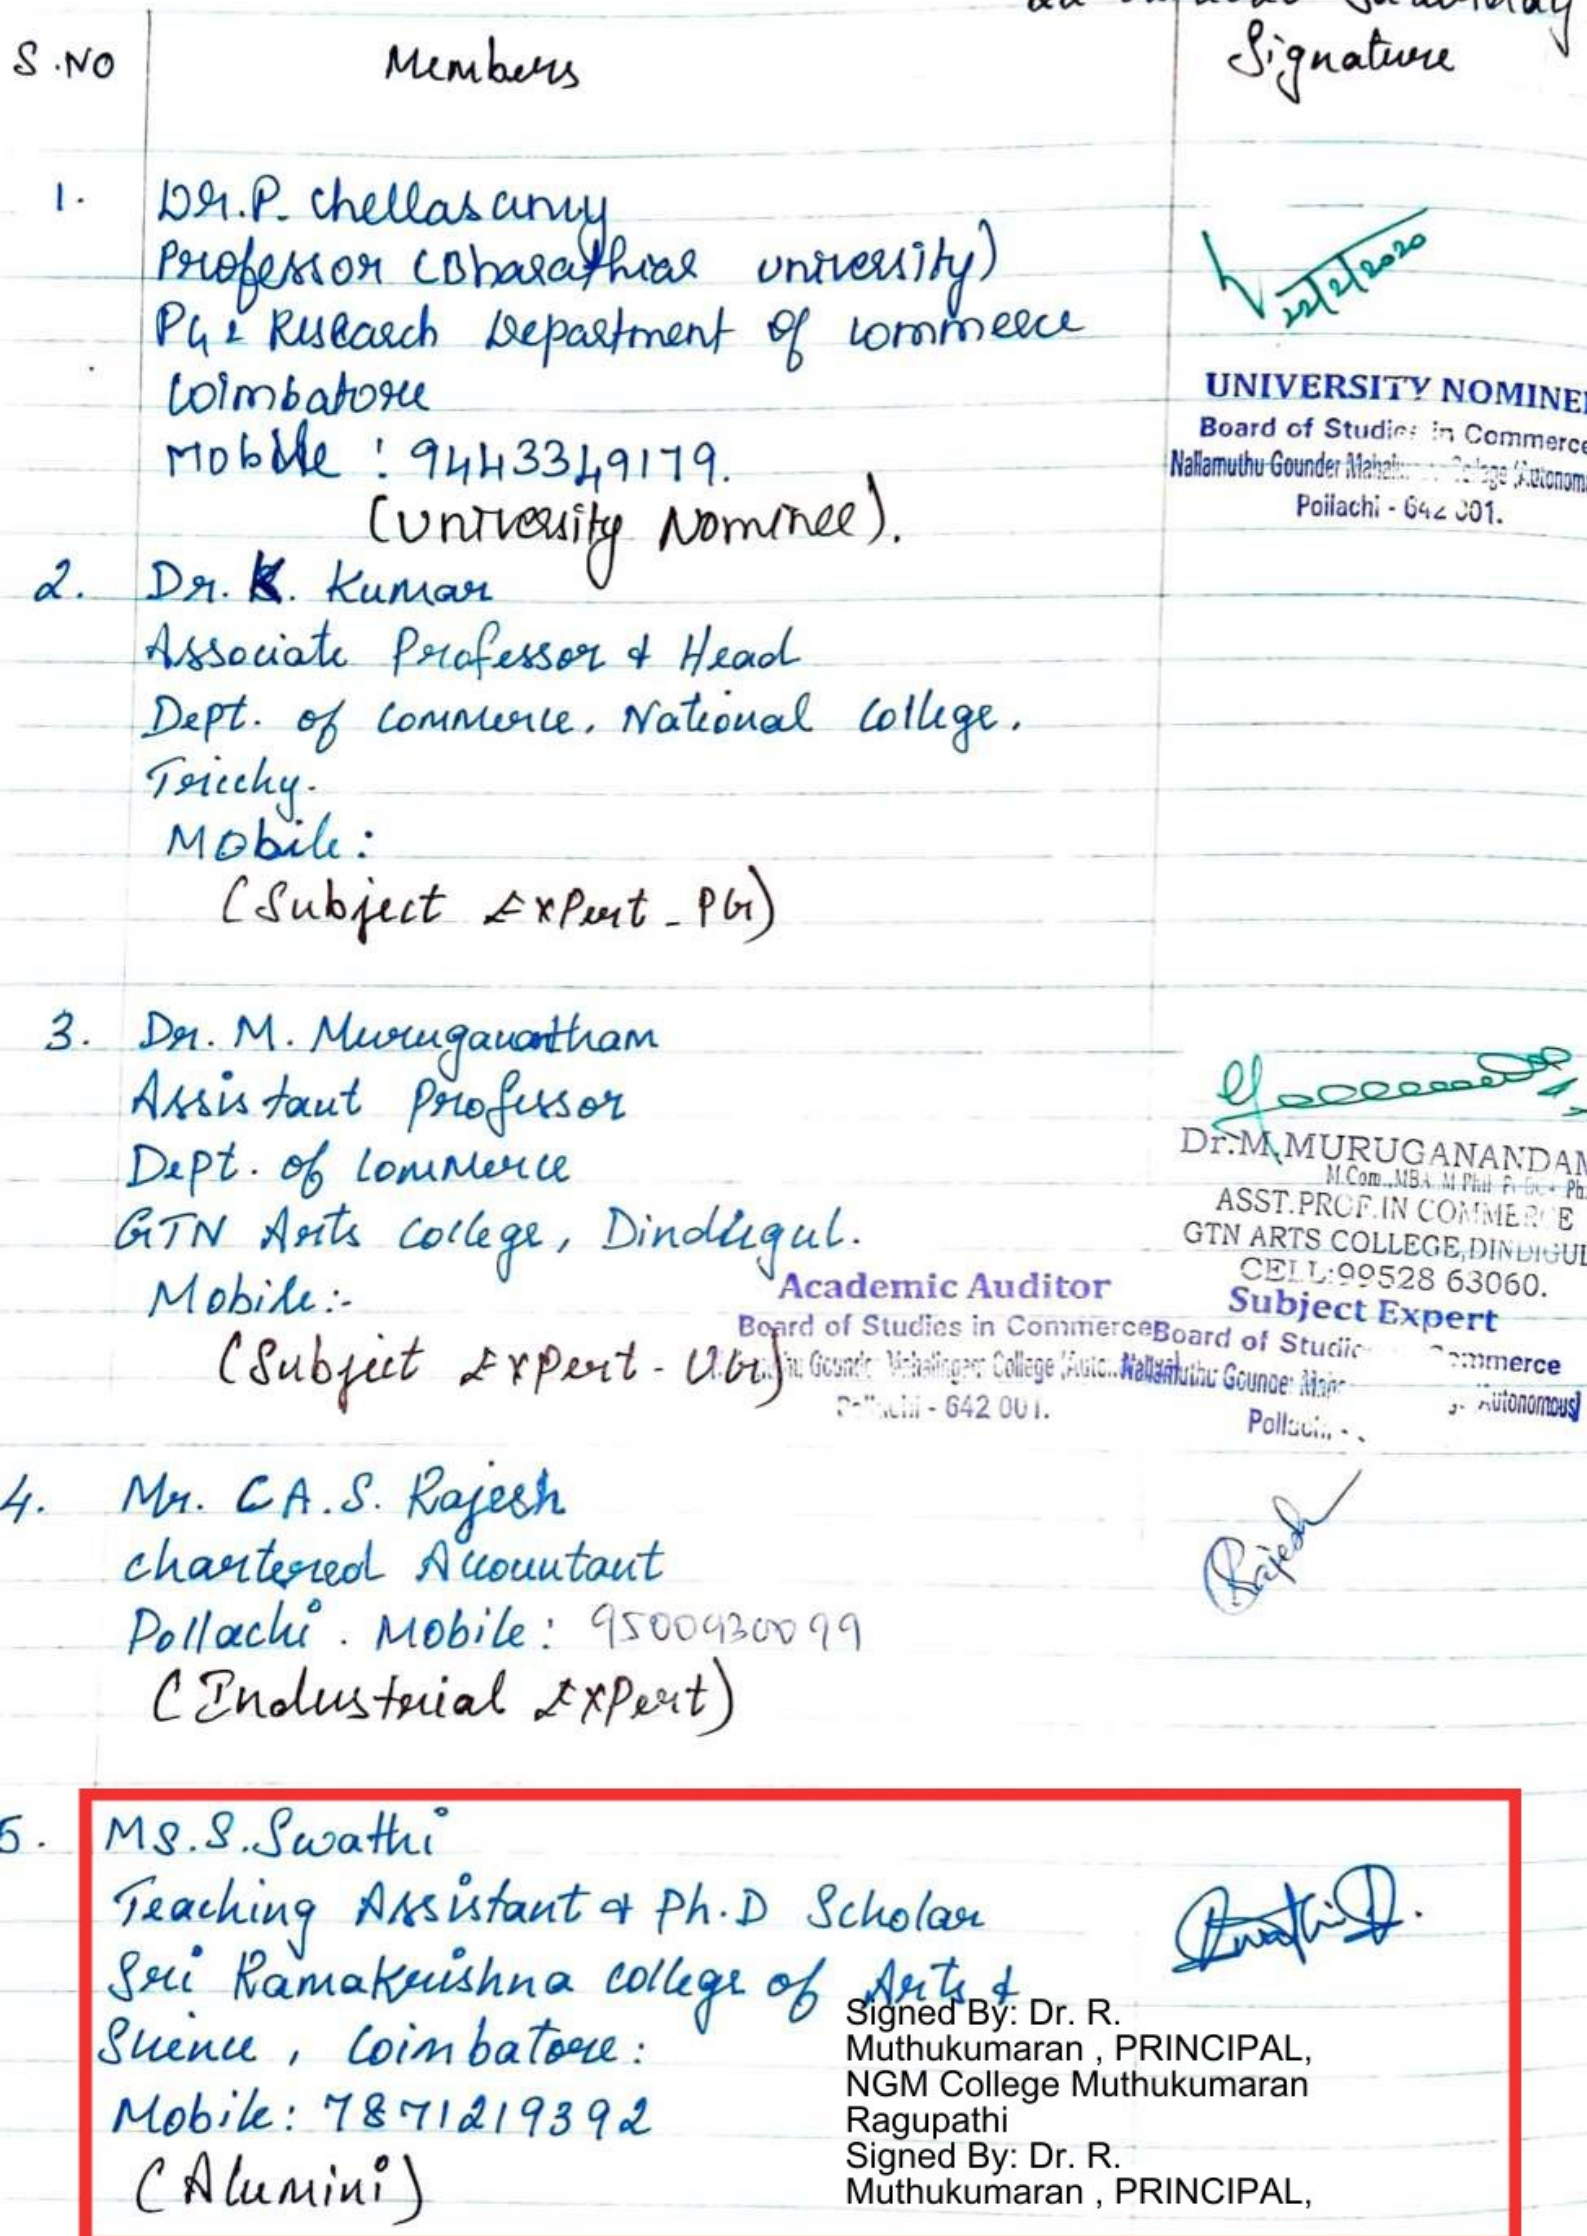 S.NO
Members
Signature
1.
Dr. P. Chellasamy
Professor (Bharathiar University)
PG & Research Department of Commerce
Coimbatore
Mobile : 9443349179.
(University Nominee).
22/2/2020
UNIVERSITY NOMINEE
Board of Studies in Commerce
Nallamuthu Gounder
Pollachi - 642 001.
2.
Dr. K. Kumar
Associate Professor & Head
Dept. of Commerce. National College.
Tricchy.
Mobile:
(Subject Expert - PG)
3.
Dr. M. Muruganantham
Assistant Professor
Dept. of Commerce
GTN Arts College, Dindugul.
Mobile:-
(Subject Expert - UG)
Dr.M.MURUGANANDAM
ASST.PROF.IN COMMERCE
GTN ARTS COLLEGE,DINDIGUL
CELL:99528 63060.
Academic Auditor
Board of Studies in Commerce
College
- 642 001.
Subject Expert
Board of Studies Commerce
Nallamuthu Gounder Autonomous)
Pollachi
4.
Mr. CA. S. Rajesh
Chartered Accountant
Pollachi. Mobile: 9500930099
(Industrial Expert)
Rajesh
5.
Ms. S. Swathi
Teaching Assistant & Ph.D Scholar
Sri Ramakrishna college of Arts &
Science, Coimbatore:
Mobile: 7871219392
(Alumini)
Signed By: Dr. R.
Muthukumaran , PRINCIPAL,
NGM College Muthukumaran
Ragupathi
Signed By: Dr. R.
Muthukumaran , PRINCIPAL,